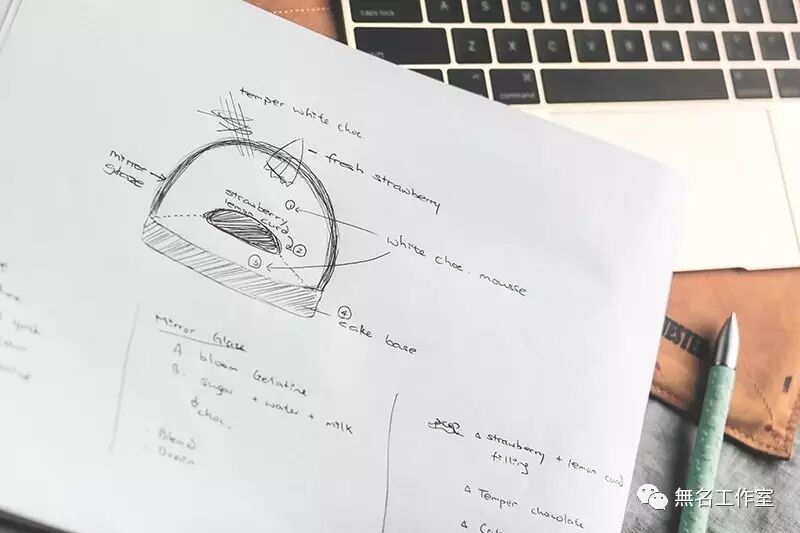 caps lock
A
S
D
F
G
H
J
K
L
Z
X
C
V
B
N
M
command
temper white choc
fresh strawberry
mirror
glaze
strawberry/
lemon curd
①
②
③
white choc. mousse
④
cake base
Mirror Glaze
A bloom Gelatine
B. sugar + water + milk
& choc.
- Blend
- Drain
△ strawberry + lemon curd
filling
△ Temper chocolate
無名工作室